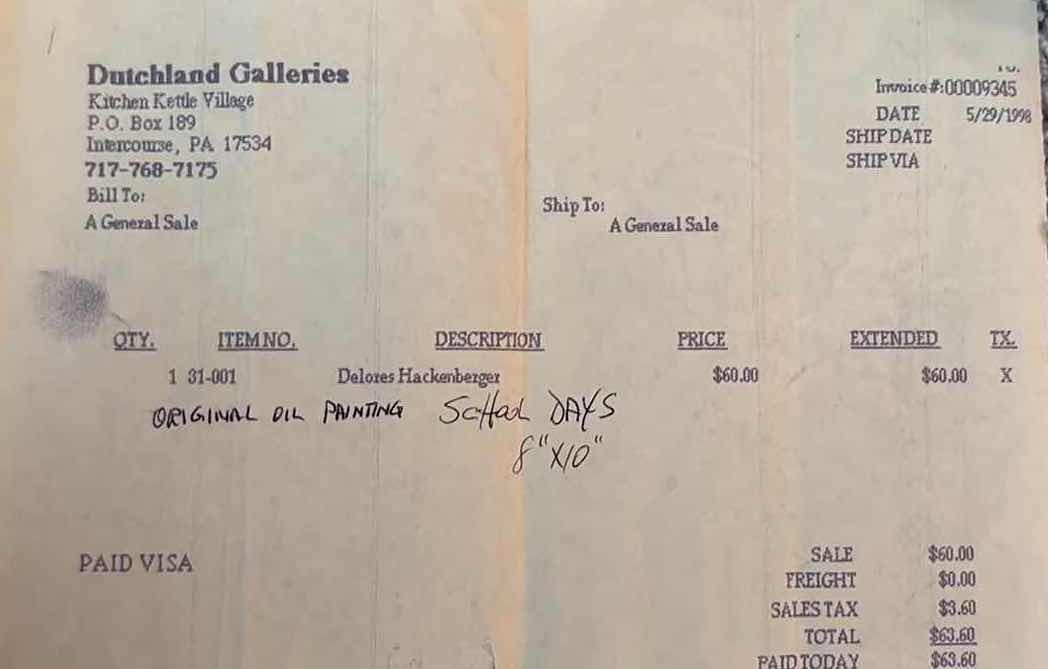 Dutchland Galleries
Kitchen Kettle Village
P.O. Box 189
Intercourse, PA 17534
717-768-7175
Invoice #:00009345
DATE 5/29/1998
SHIP DATE
SHIP VIA
Bill To:
A General Sale
Ship To:
A General Sale
QTY. ITEM NO. DESCRIPTION PRICE EXTENDED TX.
1 31-001 Delores Hackenberger $60.00 $60.00 X
ORIGINAL OIL PAINTING SCHOOL DAYS
8"X10"
PAID VISA
SALE $60.00
FREIGHT $0.00
SALES TAX $3.60
TOTAL $63.60
PAID TODAY $63.60